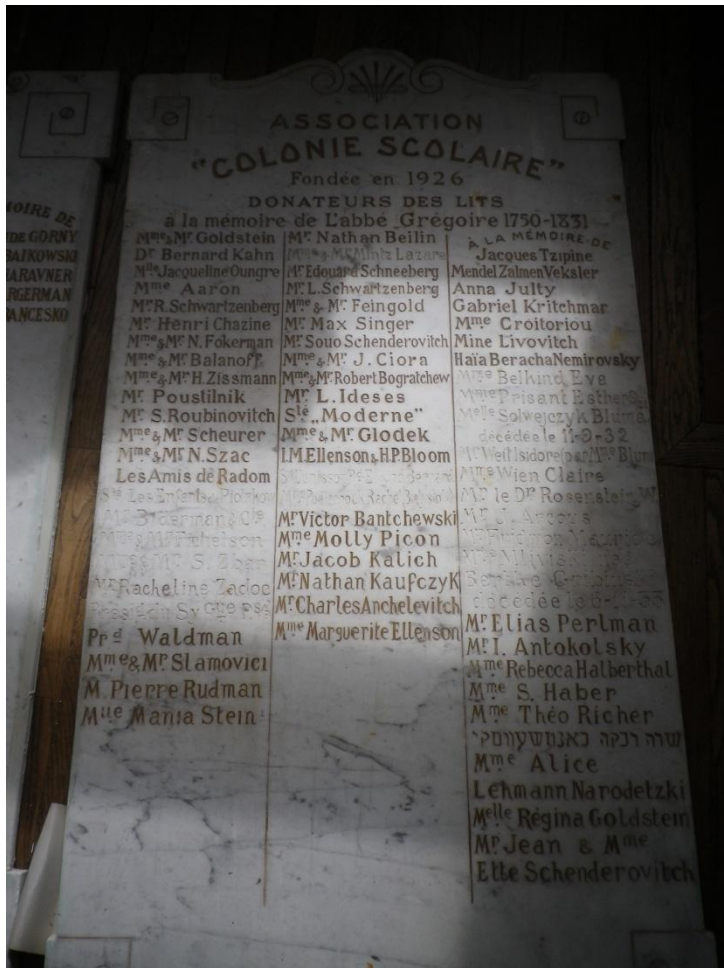 MOIRE DE
DE GORNY
RAIKOWSKI
HARAVNER
RGERMAN
ANCESKO
ASSOCIATION
"COLONIE SCOLAIRE"
Fondée en 1926
DONATEURS DES LITS
à la mémoire de L'abbé Grégoire 1750-1831
Mme & Mr Goldstein
Dr Bernard Kahn
Mlle Jacqueline Oungre
Mme Aaron
Mr R. Schwartzenberg
Mr Henri Chazine
Mme & Mr N. Fokerman
Mme & Mr Balanoff
Mme & Mr H. Zissmann
Mr Poustilnik
Mr S. Roubinovitch
Mme & Mr Scheurer
Mme & Mr N. Szac
Les Amis de Radom
Sté Les Enfants de
Mr Biderman & Cie
Mme & Mr
Mme & Mr S.
Mr Racheline Zadoc
Prd Waldman
Mme & Mr Slamovici
M. Pierre Rudman
Mlle Mania Stein
Mr Nathan Beilin
Mme & Mr Mintz Lazare
Mr Edouard Schneeberg
Mr L. Schwartzenberg
Mme & Mr Feingold
Mr Max Singer
Mr Souo Schenderovitch
Mme & Mr J. Ciora
Mme & Mr Robert Bogratchew
Mr L. Ideses
Sté „Moderne"
Mme & Mr Glodek
I.M. Ellenson & H.P. Bloom
Mr Victor Bantchewski
Mme Molly Picon
Mr Jacob Kalich
Mr Nathan Kaufczyk
Mr Charles Anchelevitch
Mme Marguerite Ellenson
À LA MÉMOIRE DE
Jacques Tzipine
Mendel Zalmen Veksler
Anna Julty
Gabriel Kritchmar
Mme Croitoriou
Mine Livovitch
Haïa Beracha Nemirovsky
Mme Belkind Eva
Mme Prisant Esther
Melle Solwejczyk Bluma
décédée le 11-9-32
Mr Weil Isidore par Mme Blum
Mme Wien Claire
Mr le Dr Rosenstein W.
Mr
décédée le
Mr Elias Perlman
Mr I. Antokolsky
Mme Rebecca Halberthal
Mme S. Haber
Mme Théo Richer
שרה רבקה כאנטשעווסקי
Mme Alice
Lehmann Narodetzki
Melle Régina Goldstein
Mr Jean & Mme
Ette Schenderovitch